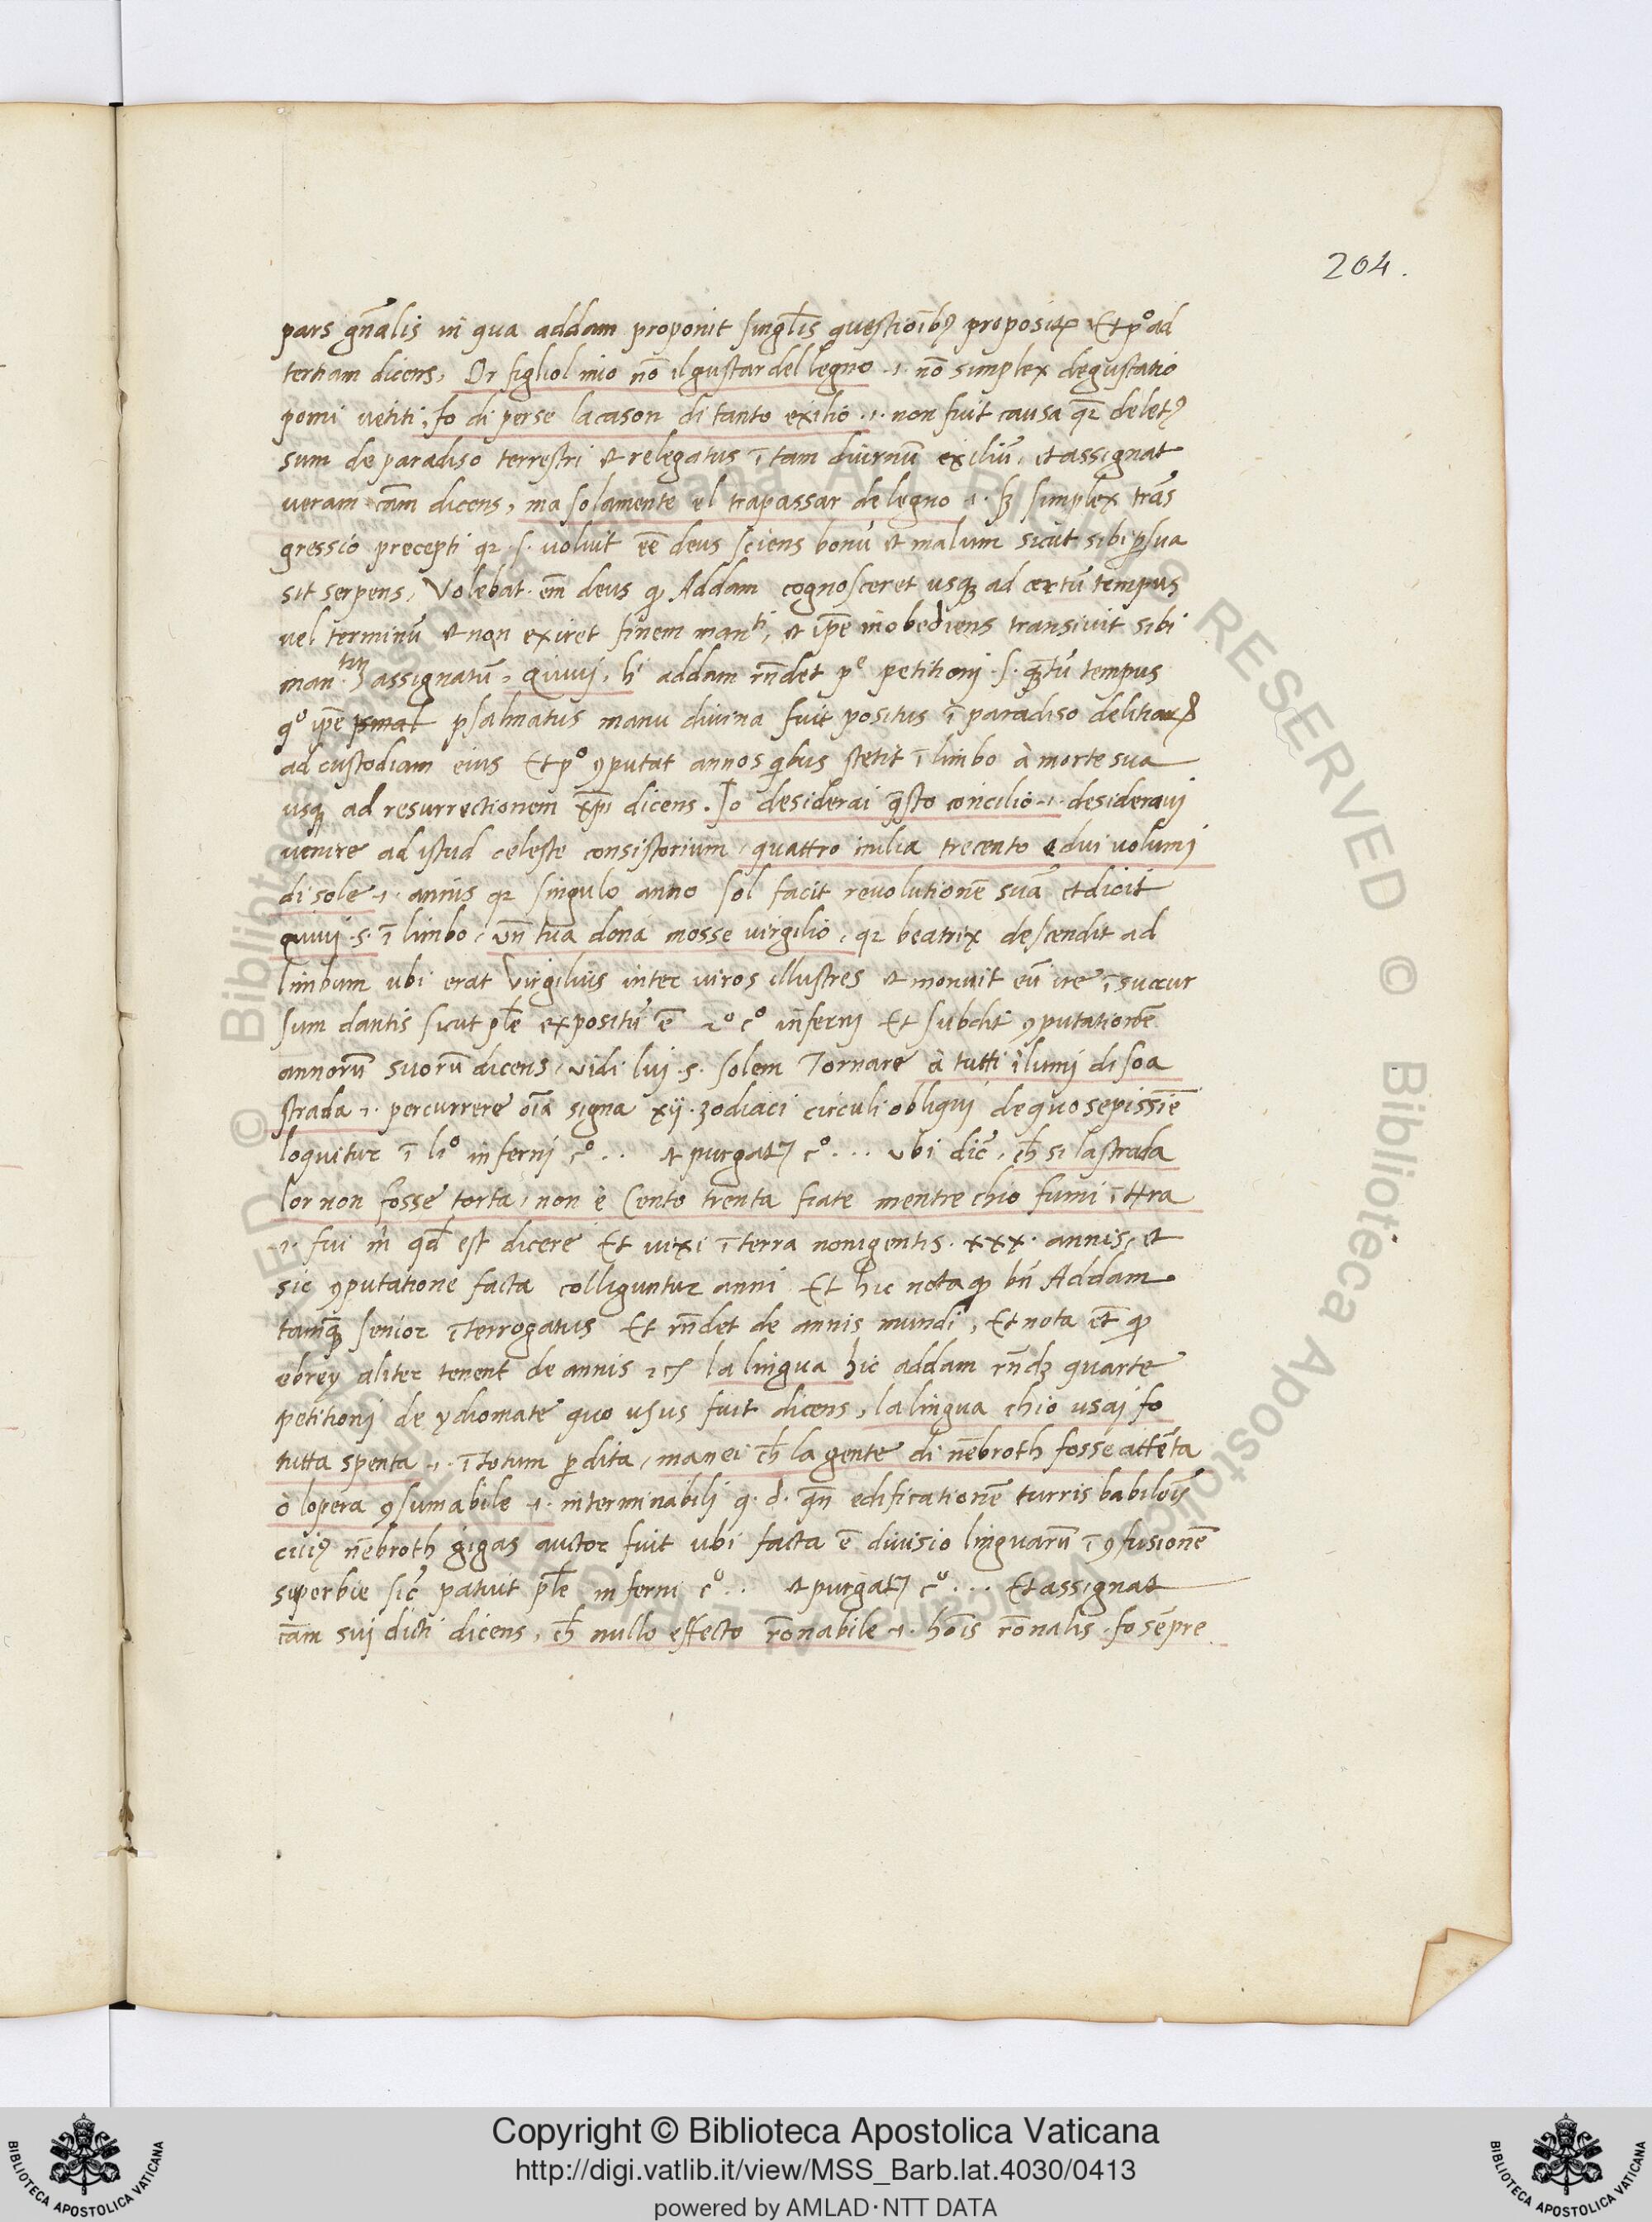 204.
pars gñalis in qua addam proponit singl̃is questioĩbꝰ propositꝫ Et pº ad
tertiam dicens, Or figliol mio nõ il gustar del legno .i. nõ simplex degustatio
pomi vetiti, fo di perse la cason di tanto exilio .i. non fuit causa qꝛ deletꝰ
sum de paradiso terrestri et relegatus ĩ tam diurnũ exiliũ, et assignat
veram cãm dicens, ma solamente el trapassar de legno .i. sꝫ simplex trãs
gressio precepti qꝛ .s. voluit eẽ deus sciens bonũ et malum sicut sibi ꝑsua
sit serpens, Volebat em̃ deus ꝙ Addam cognosceret usqꝫ ad certũ tempus
vel terminũ et non exiret finem manti, et ip̃e inobediens transivit sibi
man.tum assignatũ, quivi, hi addam rñdet pe petitionj .s. quãtũ tempus
qº ip̃e psmat psalmatus manu divina fuit positus ĩ paradiso delitiaꝝ
ad custodiam eius Et pº ꝯputat annos quibus stetit ĩ limbo à morte sua
usqꝫ ad resurrectionem xp̃i dicens. Io desiderai q̃sto concilio .i. desideravj
venire ad istud celeste consistorium, quattro milia trecento e dui volumj
di sole .i. annis qꝛ singulo anno sol facit revolutionẽ suã et dicit
quivj .s. ĩ limbo, un̄ tua donã mosse virgilio, qꝛ beatrix descendit ad
limbum ubi erat Virgilius inter viros illustres et monuit eũ ire ĩ succur
sum dantis sicut pl̃e expositũ ẽ 2º cº infernj Et subdit ꝯputationẽ
annorũ suorũ dicens, vidi luj .s. solem Tornare à tutti i lumj di soa
strada .i. percurrere oĩa signa xij. zodiaci circuli obliquj de quo sepissiẽ
loquitur ĩ liº infernj cº .. et purgatꝫ cº ... ubi dic̃, ch̃ si la strada
lor non fosse torta, non è Cento trenta fiate mentre chio fumi ĩ ttra
.i. fui in qd̃ est dicere Et vixi ĩ terra nonigentis .xxx. annis, et
sic ꝯputatione facta colliguntur anni Et hic nota ꝙ bñ Addam
tamq̃ senior ĩterrogatus Et rñdet de annis mundi, Et nota et̃ ꝙ
ebrey aliter tenent de annis ⁊c̃ la lingua hic addam rñdꝫ quarte
petitionj de ydiomate quo usus fuit dicens, la lingua chio usaj fo
tutta spenta .i. ĩ totum ꝑdita, manei ch̃ la gente di nẽbroth fosse attẽta
ò lopera ꝯsumabile .i. interminabilj q. d. qn̄ edificationẽ turris babilõis
cuiꝰ nẽbroth gigas auctor fuit ubi facta ẽ divisio linguarũ ĩ ꝯfusionẽ
superbie sic̃ patuit pl̃e inferni cº .. et purgatꝫ cº ... Et assignat
cãm suj dicti dicens, ch̃ nullo effecto rõnabile .i. hoĩs rõnalis, fo sẽpre
Copyright © Biblioteca Apostolica Vaticana
http://digi.vatlib.it/view/MSS_Barb.lat.4030/0413
powered by AMLAD·NTT DATA